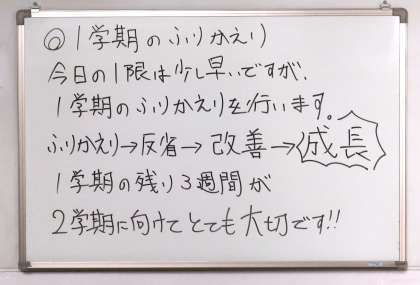 ◎1学期のふりかえり
今日の1限は少し早いですが、
1学期のふりかえりを行います。
ふりかえり→反省→改善→成長
1学期の残り3週間が
2学期に向けてとても大切です!!